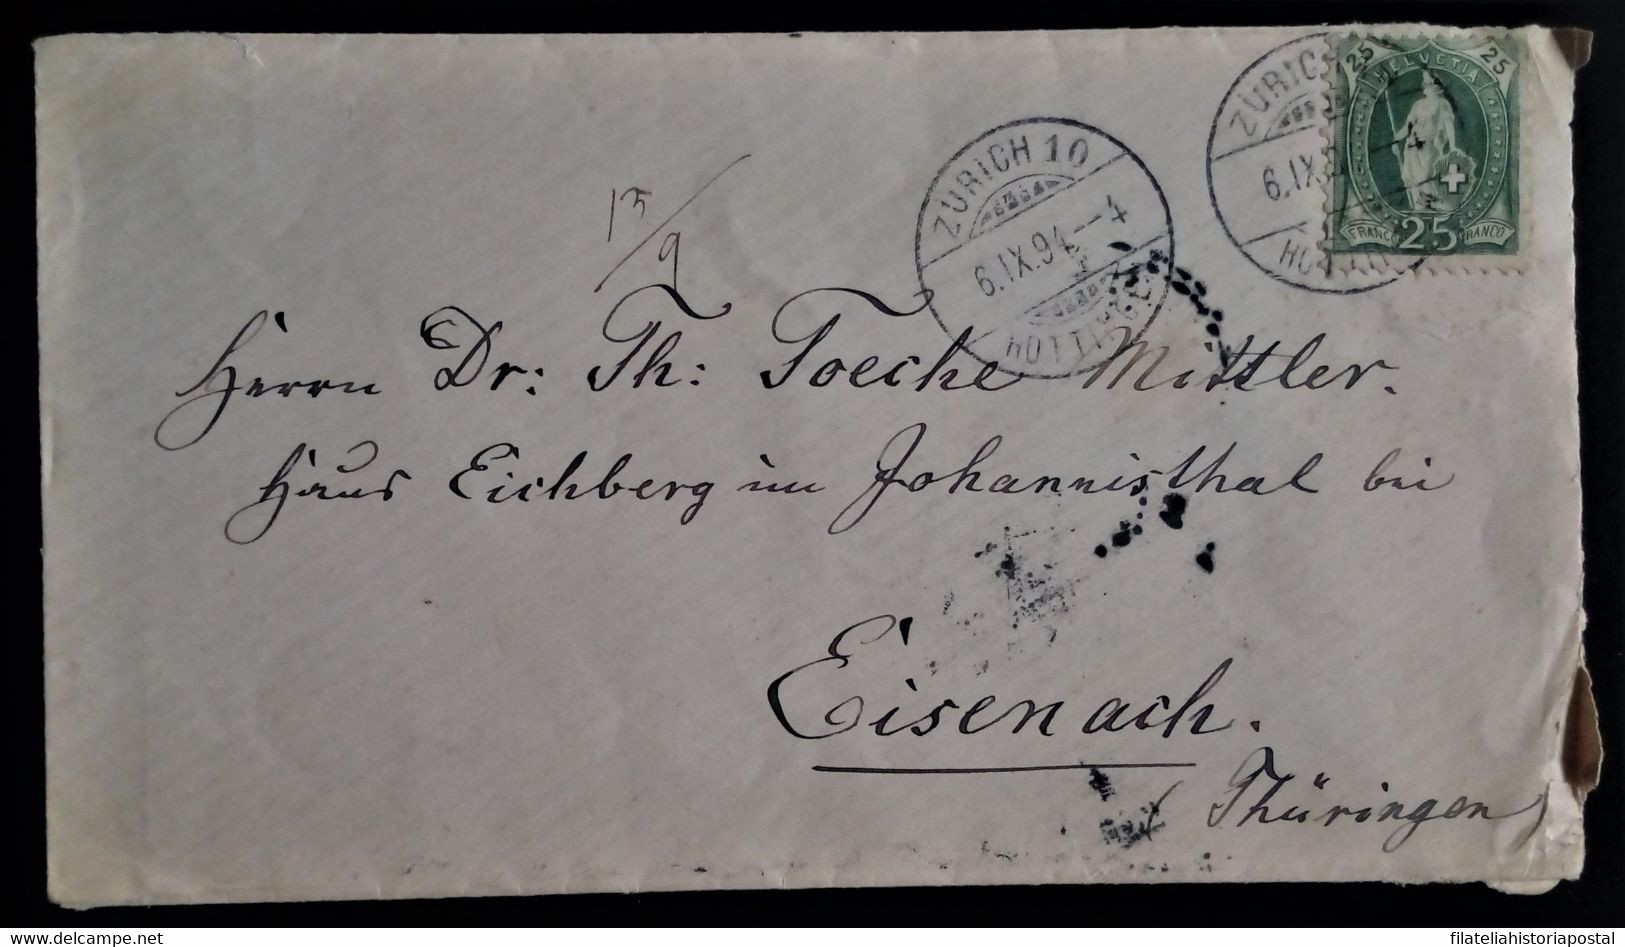 ZÜRICH 10
6.IX.94-4
HOTTINGEN
ZÜRICH
6.IX.
25 HELVETIA 25
FRANCO 25 FRANCO
13/9
Herrn Dr: Th: Toeche Mittler.
Haus Eichberg im Johannisthal bei
Eisenach.
(Thüringen)
filateliahistoriapostal